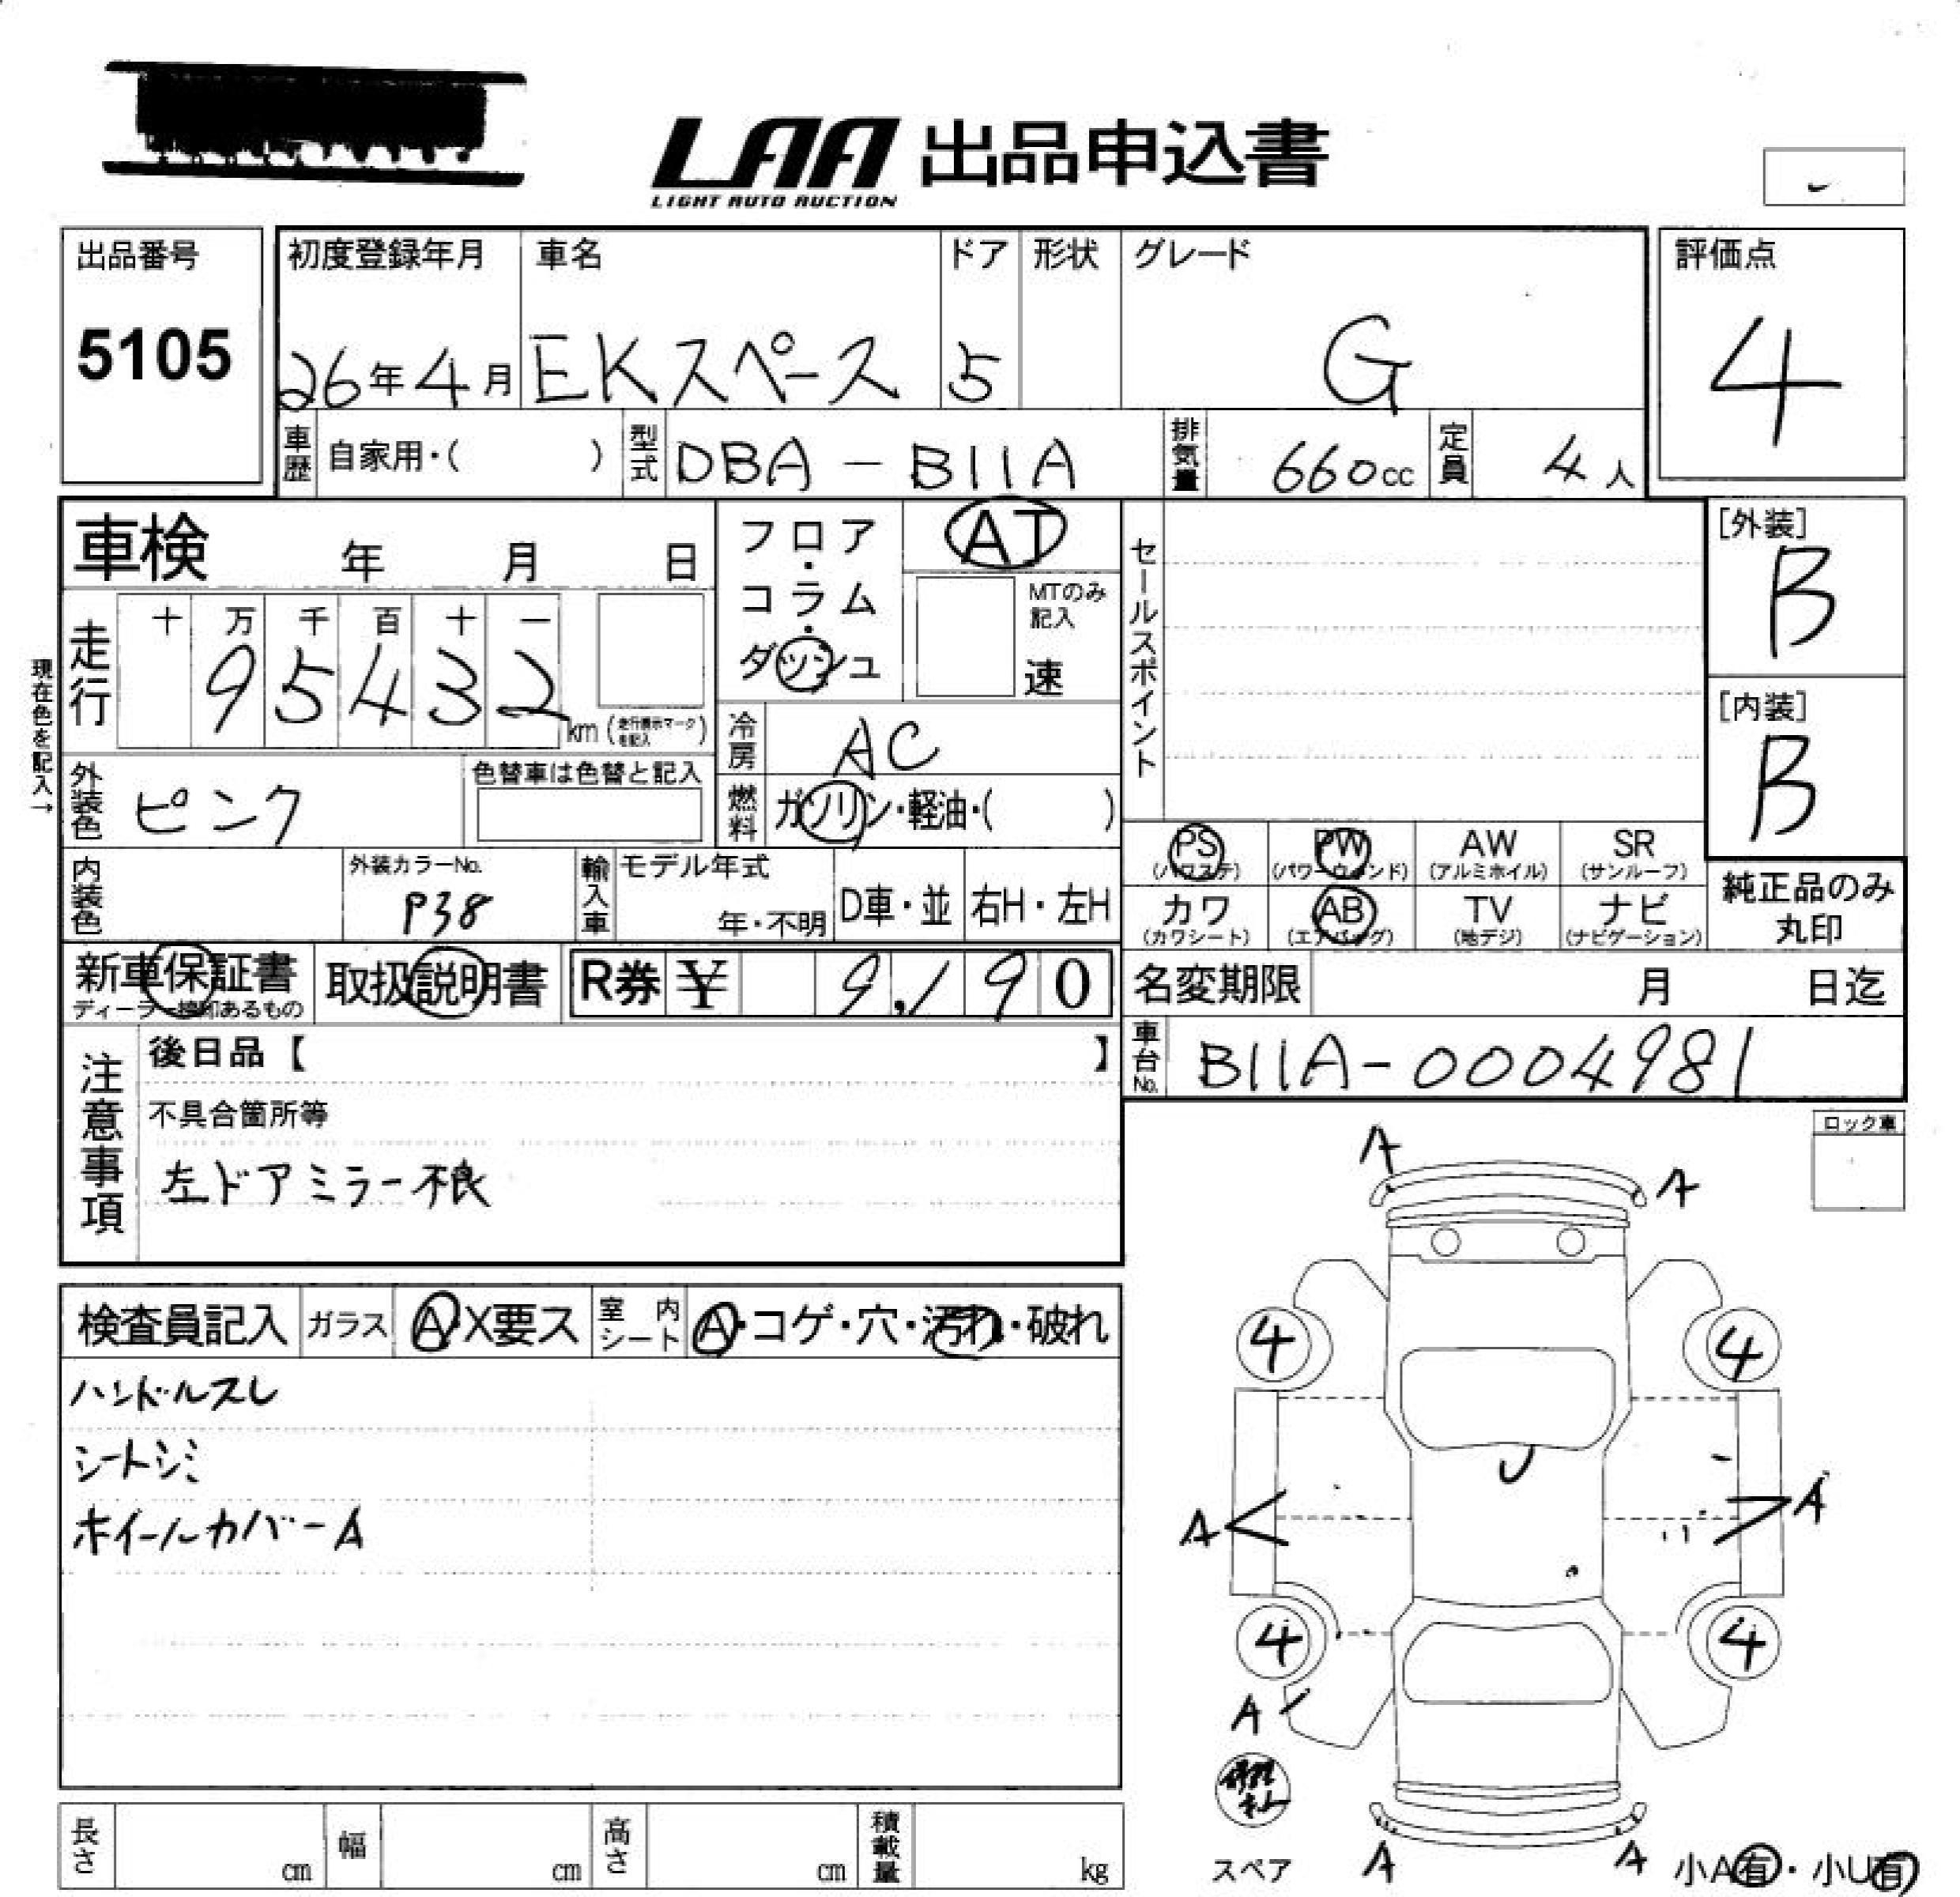 LAA 出品申込書
LIGHT AUTO AUCTION
出品番号
5105
初度登録年月 車名 ドア 形状 グレード
26年4月 EKスペース 5 G
評価点
4
車歴 自家用・( ) 型式 DBA-B11A 排気量 660cc 定員 4人
車検 年 月 日
フロア・コラム・ダッシュ
AT
MTのみ記入
速
セールスポイント
[外装]
B
[内装]
B
現在色を記入→
走行 十 万 千 百 十 一
95432 km (走行表示マークを記入)
冷房 AC
外装色 ピンク 色替車は色替と記入
燃料 ガソリン・軽油・( )
PS A(パワステ) PW (パワーウィンド) AW (アルミホイル) SR (サンルーフ)
カワ (カワシート) AB (エアバッグ) TV (地デジ) ナビ (ナビゲーション)
純正品のみ
丸印
内装色 外装カラーNo. P38 輸入車 モデル年式 年・不明 D車・並 右H・左H
新車保証書 ディーラー捺印あるもの 取扱説明書 R券 ¥ 9,190
名変期限 月 日迄
車台No. B11A-0004981
注意事項
後日品【 】
不具合箇所等
左ドアミラー不良
ロック車
A A
検査員記入 ガラス A・X要ス 室内シート A・コゲ・穴・汚れ・破れ
ハンドルスレ
シートシミ
ホイールカバーA
4 4
U
A A
4 4
A
修理キット
スペア
A A
小A有・小U有
長さ cm 幅 cm 高さ cm 積載量 kg